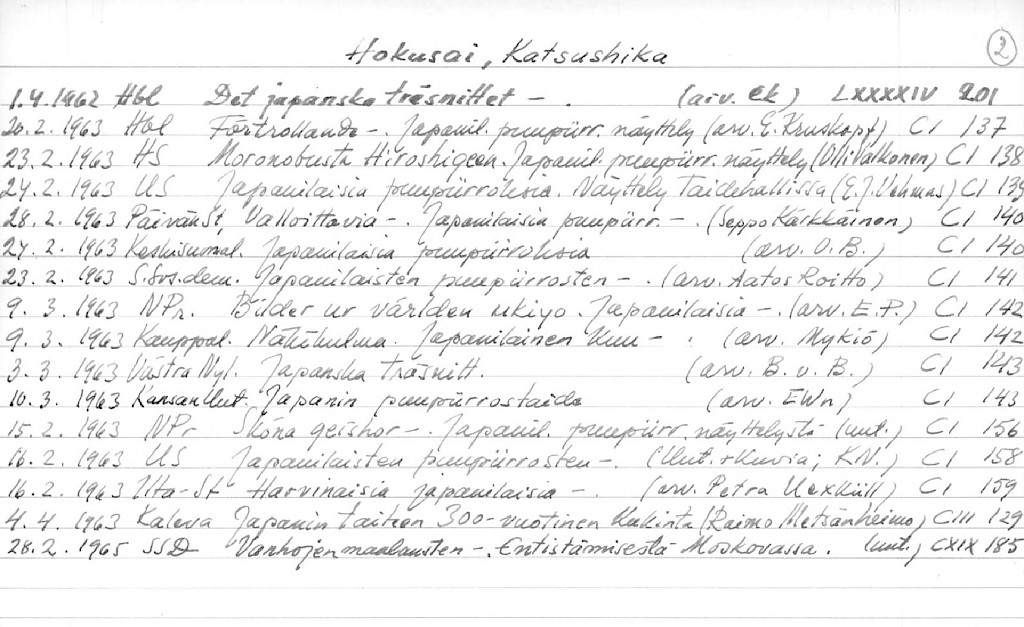 Hokusai, Katsushika
2
1.4.1962 Hbl Det japanska träsnittet - . (arv. ek) LXXXXIV 201
20.2.1963 Hbl Förtrollande -. Japanil. puupiirr. näyttely (arv. E. Kruskopf) CI 137
23.2.1963 HS Moronobusta Hiroshigeen. Japanil. puupiirr. näyttely (Olli Valkonen) CI 138
24.2.1963 US Japanilaisia puupiirroksia. Näyttely Taidehallissa (E.J. Vehmas) CI 139
28.2.1963 Päivän S, Valloittavia -. Japanilaisia puupiirr. - . (Seppo Kärkkäinen) CI 140
24.2.1963 Keskisuomal. Japanilaisia puupiirroksia (arv. O.B.) CI 140
23.2.1963 S.Sos.dem. Japanilaisten puupiirrosten - . (arv. Aatos Roitto) CI 141
9.3.1963 NPr. Bilder ur världen ukiyo. Japanilaisia -. (arv. E.P.) CI 142
9.3.1963 Kauppal. Näkökulma. Japanilainen kuu - . (arv. Mykiö) CI 142
3.3.1963 Västra Nyl. Japanska träsnitt. (arv. B. v. B.) CI 143
10.3.1963 Kansan Uut. Japanin puupiirrostaide (arv. EWn) CI 143
15.2.1963 NPr Sköna geishor -. Japanil. puupiirr. näyttelystä (uut.) CI 156
16.2.1963 US Japanilaisten puupiirrosten -. (Uut. + kuvia; K.N.) CI 158
16.2.1963 Ilta-S Harvinaisia japanilaisia - . (arv. Petra Uexküll) CI 159
4.4.1963 Kaleva Japanin taiteen 300-vuotinen kukinta (Raimo Metsänheimo) CIII 129
28.2.1965 SSD Vanhojen maalausten -. Entistämisestä Moskovassa. (uut.) CXIX 185